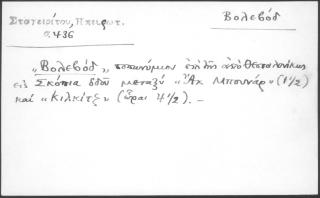 Σταγειρίτου, Ηπειρωτ.
α 436
Βολεβόδ
„Βολεβόδ„ τοπωνύμιον ἐπὶ τῆς ἀπὸ Θεσσαλονίκης
εἰς Σκόπια ὁδοῦ μεταξὺ „Ἀκ Μπουνάρ„ (1 1/2)
καὶ „Κιλκίτζ„ (ὧραι 4 1/2). –